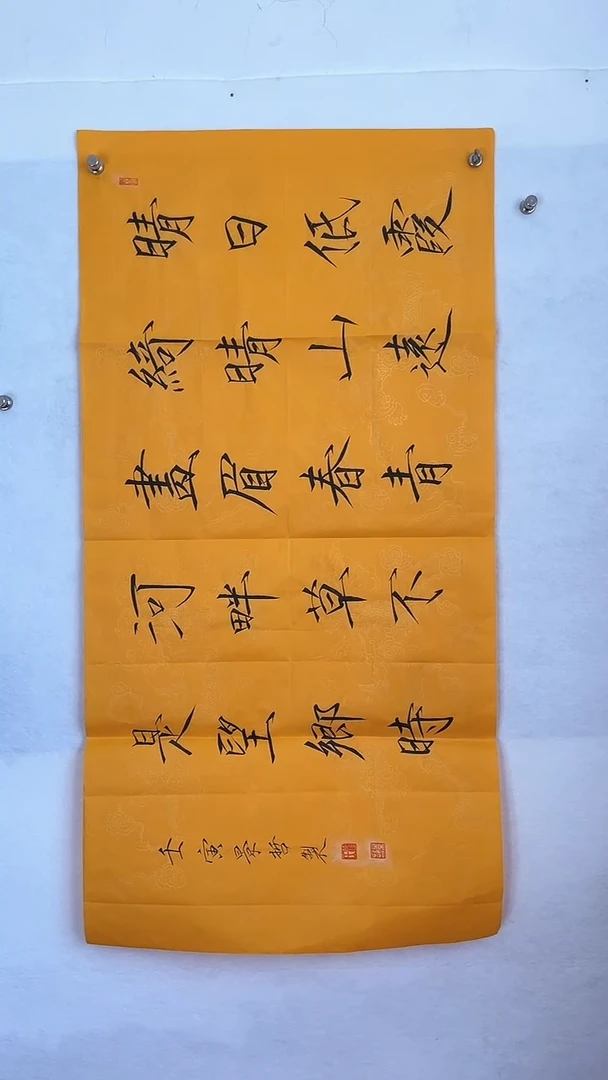 晴日低霞
綺晴山遠
畫眉春青
河畔草不
是望鄉時
壬寅景哲製